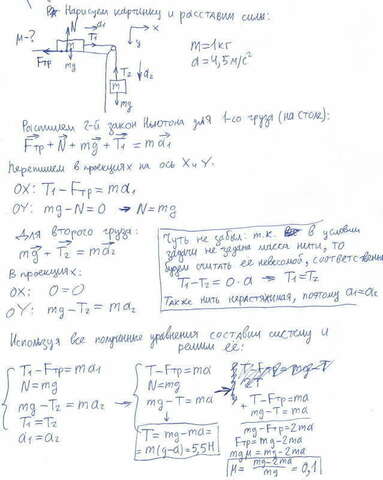 Нарисуем картинку и расставим силы:
μ-?
N
a₁
T₁
m
Fтр
mg
x
y
T₂
a₂
m
mg
m=1кг
a=4,5м/с²
Распишем 2-й закон Ньютона для 1-го груза (на столе):
Fтр + N + mg + T₁ = ma₁
Перепишем в проекциях на ось X и Y:
OX: T₁ - Fтр = ma₁
OY: mg - N = 0 → N = mg
Для второго груза:
mg + T₂ = ma₂
В проекциях:
OX: 0 = 0
OY: mg - T₂ = ma₂
Чуть не забыл: т.к. в условии
задачи не задана масса нити, то
будем считать её невесомой, соответственно
T₁ - T₂ = 0·a → T₁ = T₂
Также нить нерастяжимая, поэтому a₁=a₂
Используя все полученные уравнения составим систему и
решим её:
T₁ - Fтр = ma₁
N = mg
mg - T₂ = ma₂
T₁ = T₂
a₁ = a₂
T - Fтр = ma
N = mg
mg - T = ma
T = mg - ma =
= m(g-a) = 5,5Н
+ T - Fтр = ma
mg - T = ma
mg - Fтр = 2ma
Fтр = mg - 2ma
mgμ = mg - 2ma
μ = mg - 2ma / mg = 0,1